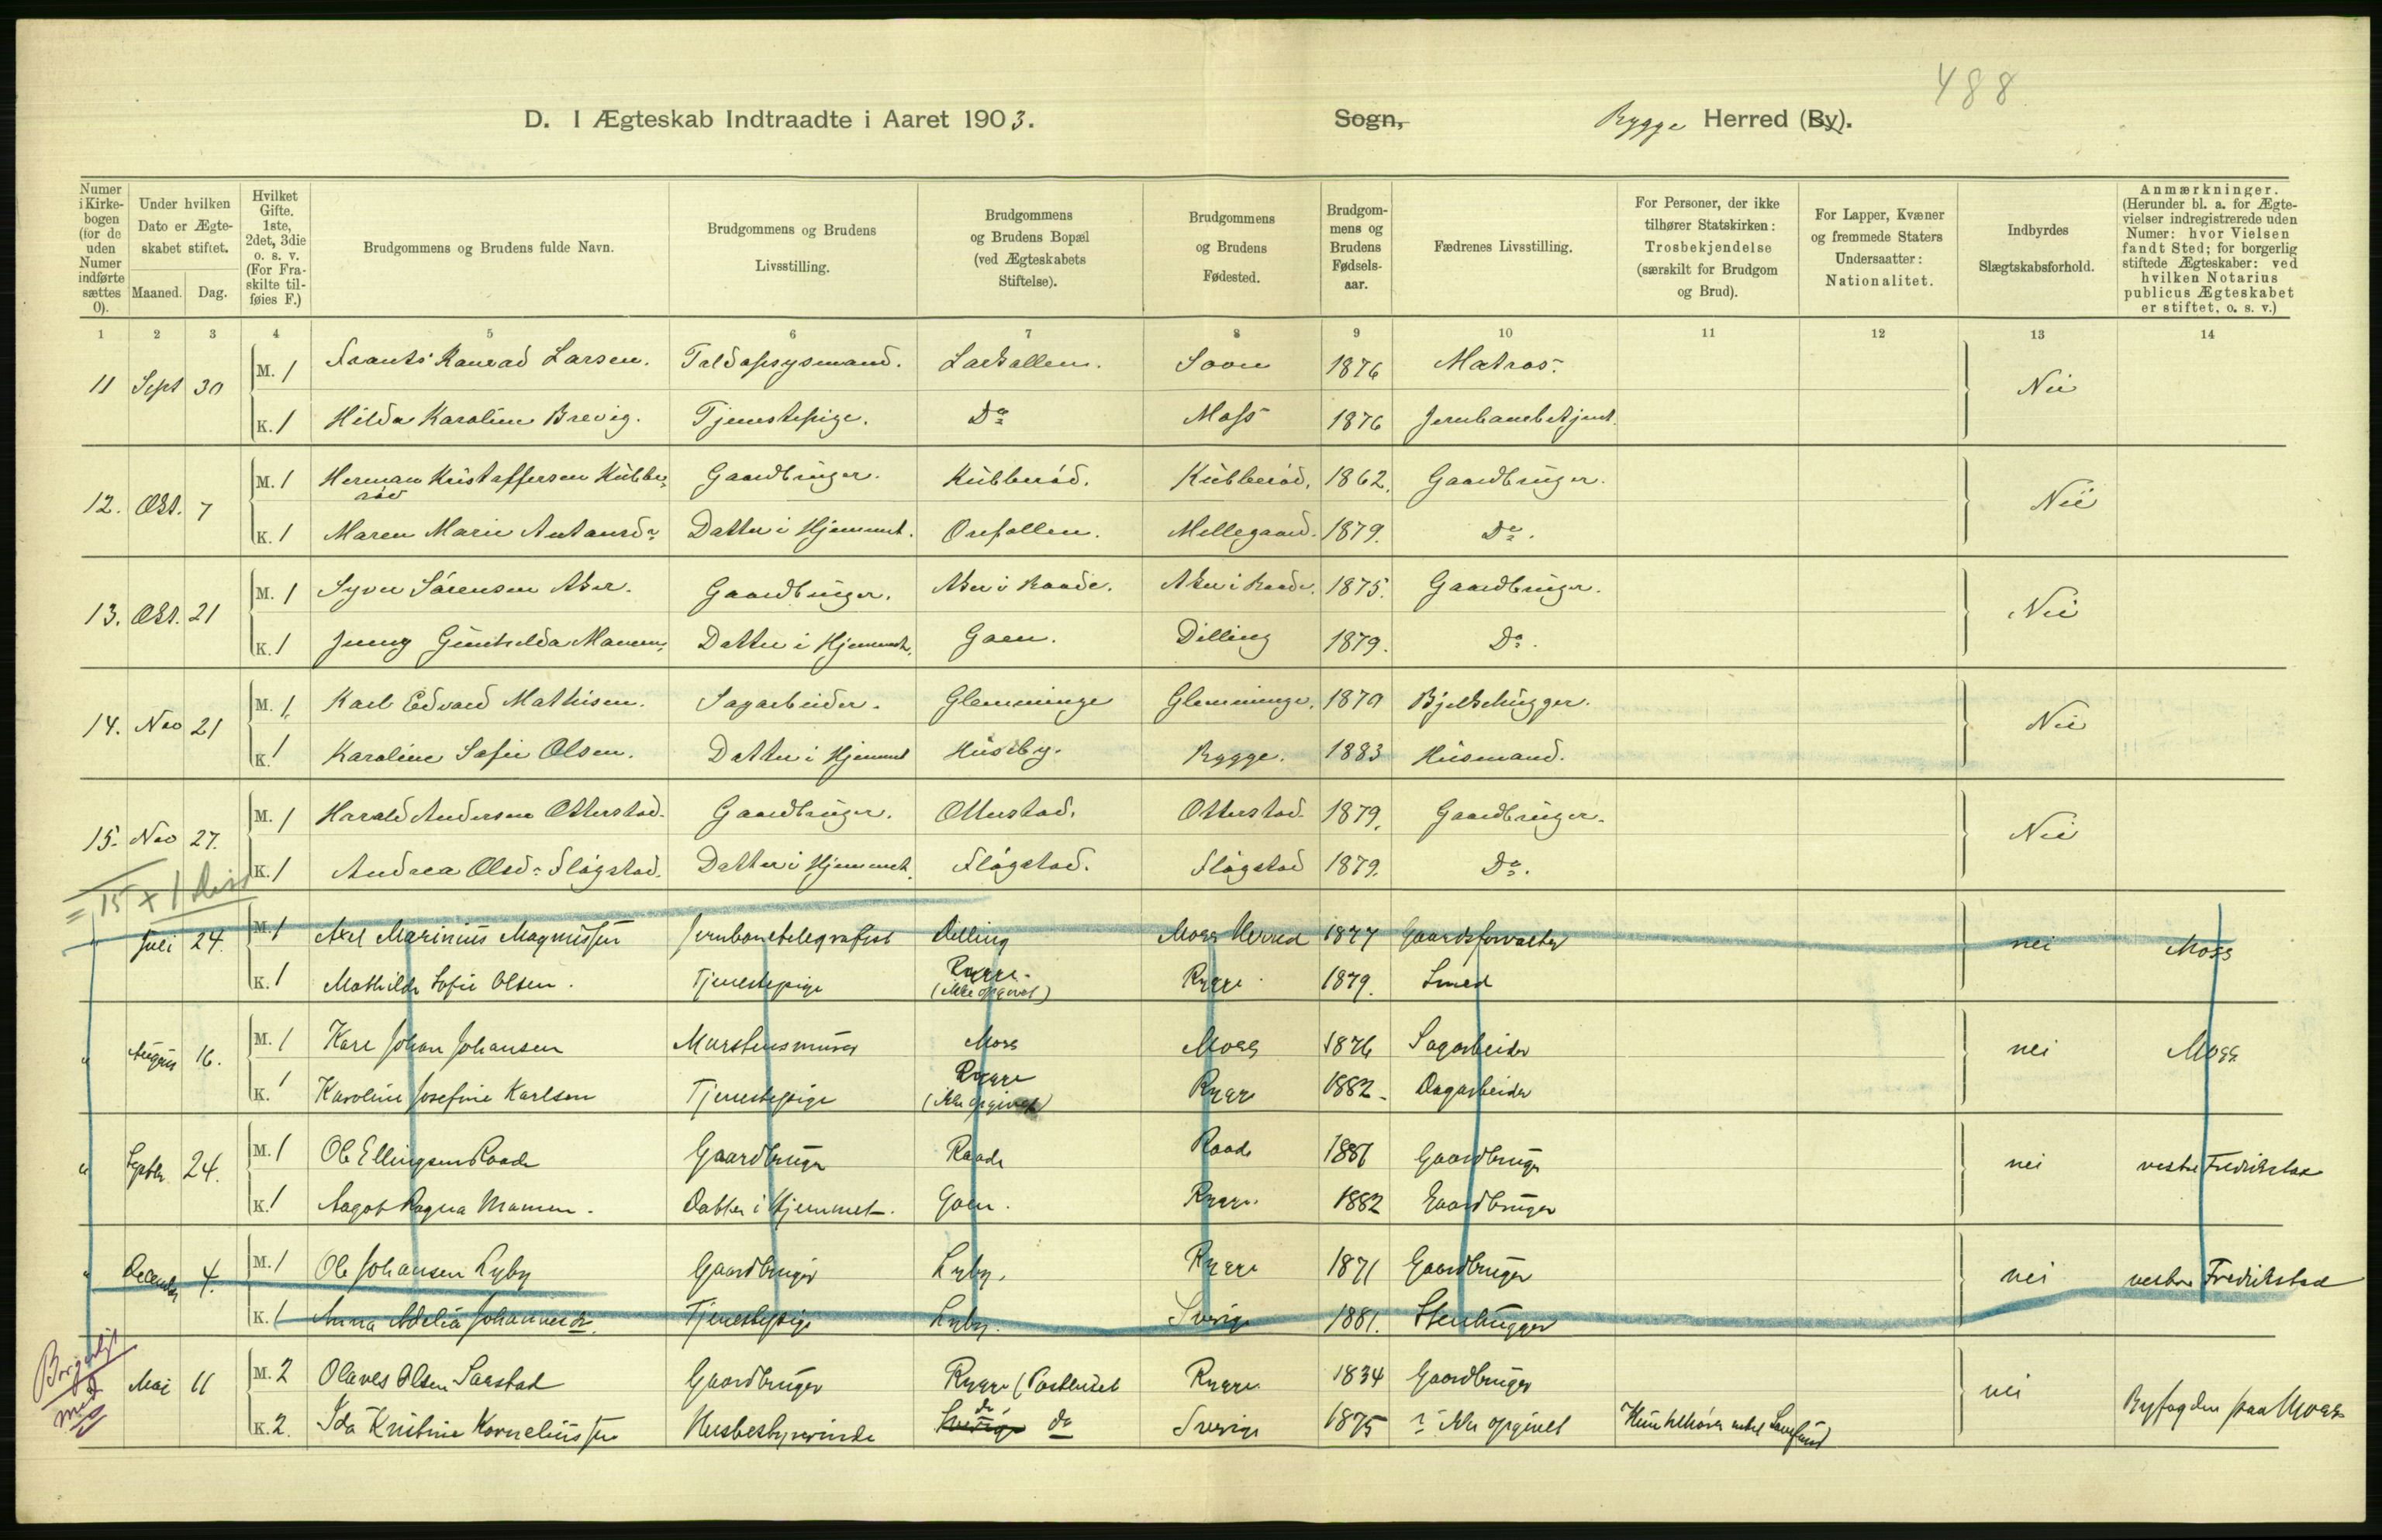 488
D. I Ægteskab Indtraadte i Aaret 1903. Sogn, Rygge Herred (By).
Numer i Kirkebogen (for de uden Numer indførte sættes 0).
Under hvilken Dato er Ægteskabet stiftet.
Maaned. Dag.
Hvilket Gifte. 1ste, 2det, 3die o. s. v. (For Fraskilte tilføies F.)
Brudgommens og Brudens fulde Navn.
Brudgommens og Brudens Livsstilling.
Brudgommens og Brudens Bopæl (ved Ægteskabets Stiftelse).
Brudgommens og Brudens Fødested.
Brudgommens og Brudens Fødselsaar.
Fædrenes Livsstilling.
For Personer, der ikke tilhører Statskirken: Trosbekjendelse (særskilt for Brudgom og Brud).
For Lapper, Kvæner og fremmede Staters Undersaatter: Nationalitet.
Indbyrdes Slægtskabsforhold.
Anmærkninger. (Herunder bl. a. for Ægtevielser indregistrerede uden Numer: hvor Vielsen fandt Sted; for borgerlig stiftede Ægteskaber: ved hvilken Notarius publicus Ægteskabet er stiftet, o. s. v.)
1 2 3 4 5 6 7 8 9 10 11 12 13 14
11 Sept 30 M. 1 Frants Konrad Larsen. Larkollen. Soon 1876 Matros. Nei
K. 1 Hilda Karoline Brevig. Tjenestepige. Do Moss 1876 Jernbanebetjent.
12. Okt. 7 M. 1 Herman Kristoffersen Kubberød Gaardbruger. Kubberød. Kubberød. 1862. Gaardbruger. Nei
K. 1 Maren Marie Antonsdr Datter i Hjemmet. Orefollen. Mellegaard. 1879. Do.
13. Okt. 21 M. 1 Syver Sørensen Aker. Gaardbruger. Aker i Raade. Aker i Raade. 1875. Gaardbruger. Nei
K. 1 Jenny Gunhilda Mamen. Datter i Hjemmet. Gaen. Dilling 1879. Do.
14. Nov 21 M. 1 Karl Edvard Mathisen. Sagarbeider. Glemminge Glemminge. 1879 Bjelkehugger. Nei
K. 1 Karoline Sofie Olsen. Datter i Hjemmet Huseby. Rygge. 1883 Husmand.
15. Nov 27. M. 1 Harald Andersen Otterstad. Gaardbruger. Otterstad. Otterstad. 1879. Gaardbruger. Nei
K. 1 Andrea Olsdr Fløgstad. Datter i Hjemmet. Fløgstad. Fløgstad 1879. Do.
= 15 + 1 diss
" Juli 24. M. 1 Axel Marinius Magnussen Jernbanetelegrafist Dilling Moss Herred 1877 Gaardsforvalter nei Moss
K. 1 Mathilde Sofie Olsen. Tjenestepige Rygge. (ikke opgivet) Rygge 1879. Smed
" August 16. M. 1 Karl Johan Johansen Murstensmurer Moss Moss 1876 Sagarbeider nei Moss
K. 1 Karoline Josefine Karlsen Tjenestepige Rygge (ikke opgivet) Rygge 1882. Dagarbeider
" Septbr. 24. M. 1 Ole Ellingsen Raade Gaardbruger Raade Raade 1881 Gaardbruger nei vestre Fredrikstad
K. 1 Aagot Ragna Mamen. Datter i Hjemmet. Gaen. Rygge. 1882 Gaardbruger
" December 4. M. 1 Ole Johansen Lyby Gaardbruger Lyby. Rygge 1871 Gaardbruger nei vestre Fredrikstad
K. 1 Anna Adelia Johannesdr. Tjenestepige Lyby. Sverige 1881. Stenhugger
Borgerligt
Mai 11 M. 2 Olaves Olsen Saastad Gaardbruger Rygge Rygge. 1834 Gaardbruger nei Byfogden paa Moss
K. 2. Ida Kristine Korneliussen Husbestyrerinde Sverige do do Sverige 1875 ? ikke opgivet